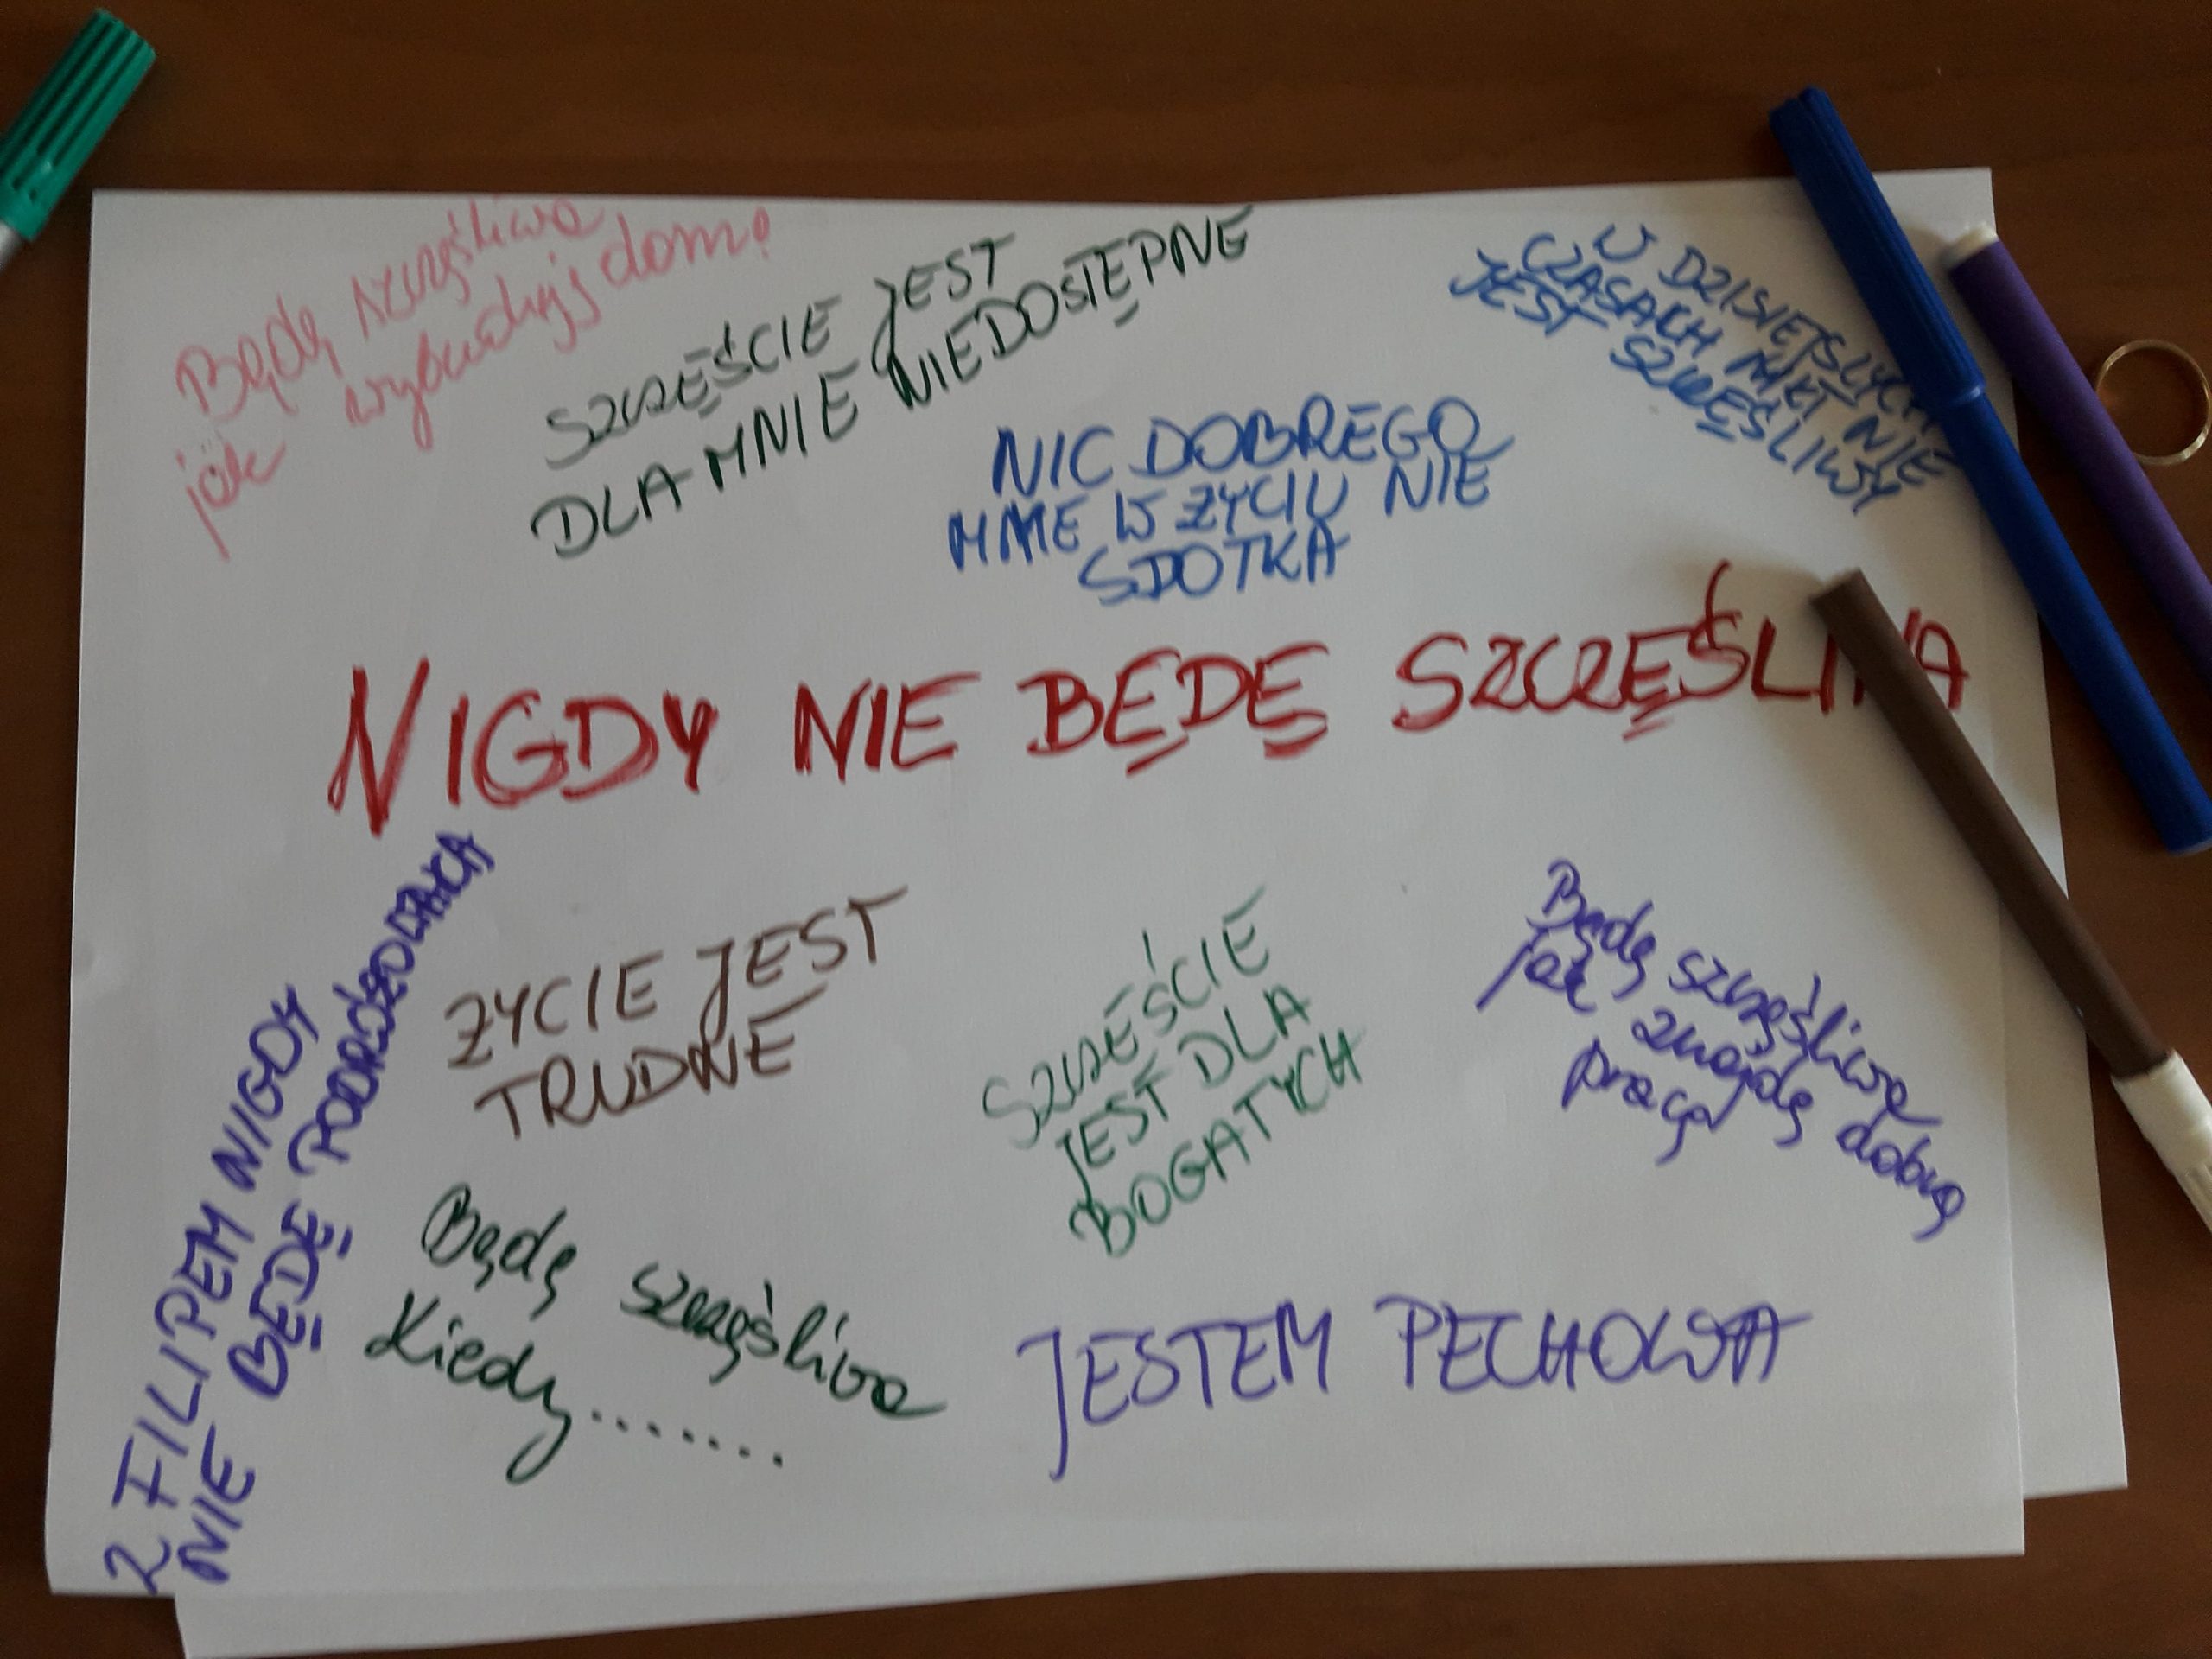 Będę szczęśliwa
jak wybuduję dom!
SZCZĘŚCIE JEST
DLA MNIE NIEDOSTĘPNE
W DZISIEJSZYCH
CZASACH NIKT NIE
JEST SZCZĘŚLIWY
NIC DOBREGO
MNIE W ŻYCIU NIE
SPOTKA
NIGDY NIE BĘDĘ SZCZĘŚLIWA
Z FILIPEM NIGDY
NIE BĘDĘ PODRÓŻOWAŁA
ZYCIE JEST
TRUDNE
SZCZĘŚCIE
JEST DLA
BOGATYCH
Będę szczęśliwa
jak znajdę dobrą
pracę
Będę szczęśliwa
Kiedy.......
JESTEM PECHOWA